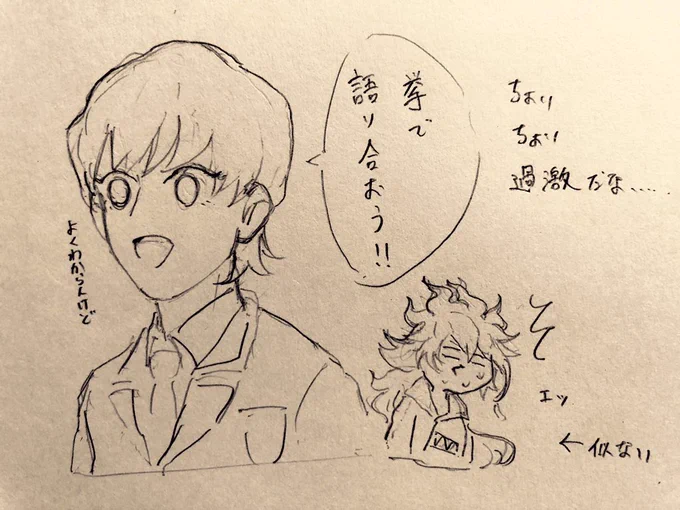 拳で
語り合おう!!
ちょい
ちょい
過激だな……
よくわからんけど
エッ
← 似ない